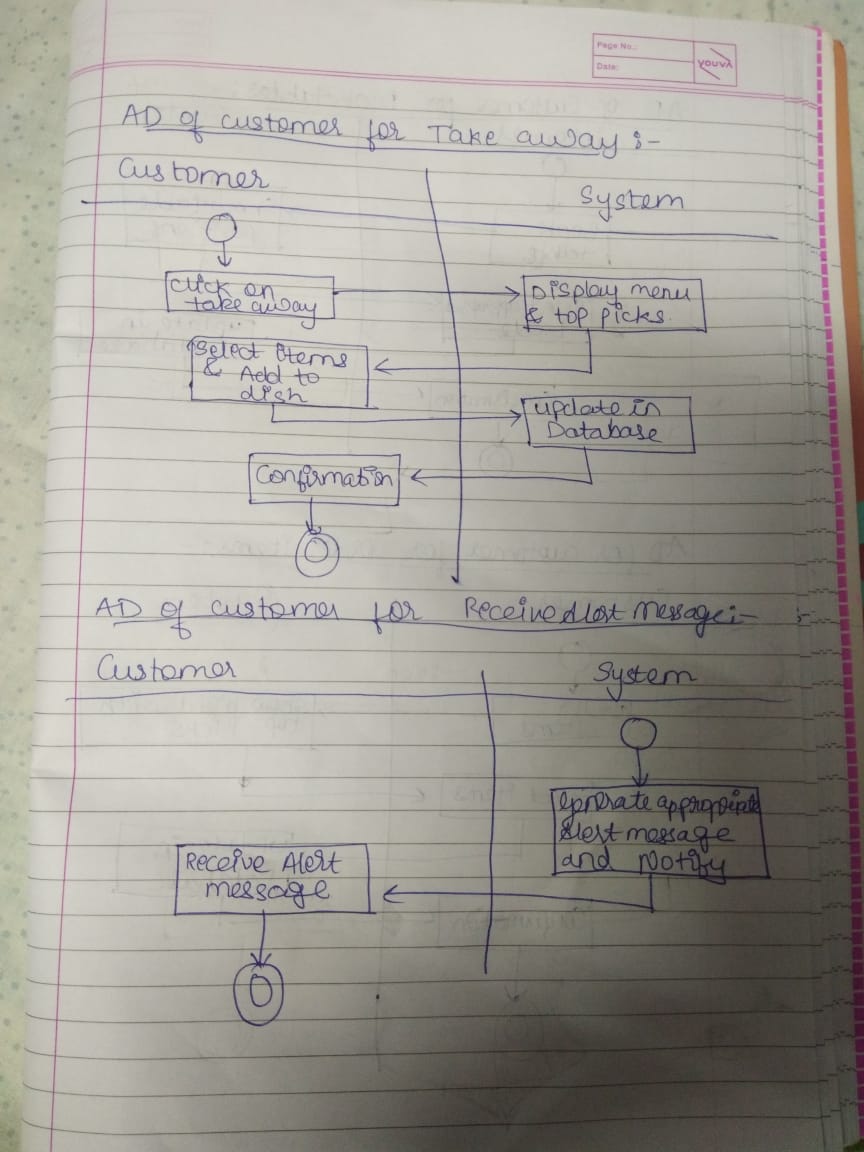 Page No.:
Date:
YOUVA
AD of customer for Take away :-
Customer
System
click on
take away
Display menu
& top picks.
Select Items
& Add to
dish
update in
Database
Confirmation
AD of customer for Receive Alert Message:-
Customer
System
Generate appropriate
Alert message
and Notify
Receive Alert
message